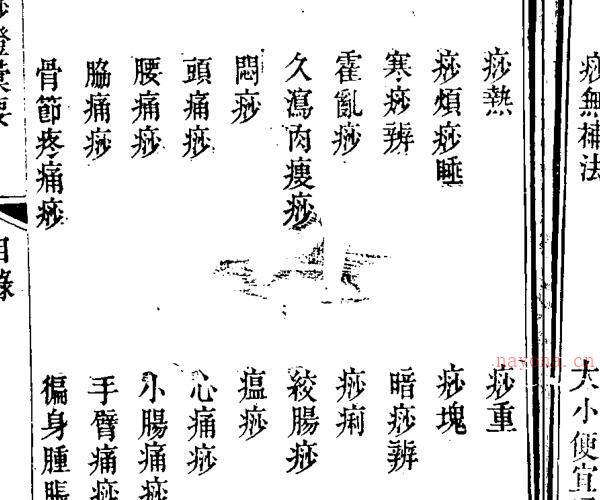 痧無補法
大小便宜
痧熱
痧重
痧煩痧睡
痧塊
寒痧辨
暗痧辨
霍亂痧
痧痢
久瀉肉瘦痧
絞腸痧
悶痧
瘟痧
頭痛痧
心痛痧
腰痛痧
小腸痛痧
脇痛痧
手臂痛痧
骨節疼痛痧
徧身腫脹
目錄
nayona.cn